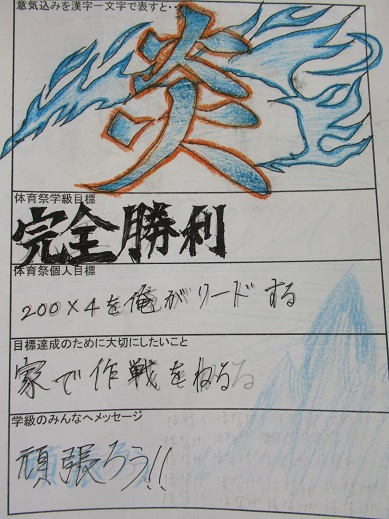 意気込みを漢字一文字で表すと・・
炎
体育祭学級目標
完全勝利
体育祭個人目標
200×4を俺がリードする
目標達成のために大切にしたいこと
家で作戦をねる
学級のみんなへメッセージ
頑張ろう!!